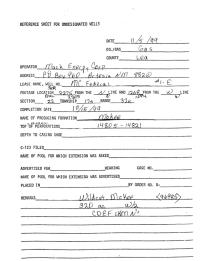 REFERENCE SHEET FOR UNDESIGNATED WELLS
DATE 11/5/99
OIL/GAS Gas
COUNTY Lea
OPERATOR Mack Energy Corp
ADDRESS PO Box 960 Artesia NM 88210
LEASE NAME, WELL NO. MC Federal #1-E
FOOTAGE LOCATION FROM THE N LINE AND FROM THE W LINE
SECTION 22 TOWNSHIP 17s RANGE 32e
COMPLETION DATE
NAME OF PRODUCING FORMATION
TOP OF PERFORATIONS 14805-14821
DEPTH TO CASING SHOE
C-123 FILED
NAME OF POOL FOR WHICH EXTENSION WAS ASKED
ADVERTISED FOR HEARING CASE NO.
NAME OF POOL FOR WHICH EXTENSION WAS ADVERTISED
PLACED IN BY ORDER NO. R-
REMARKS Wildcat
320 ac W/2